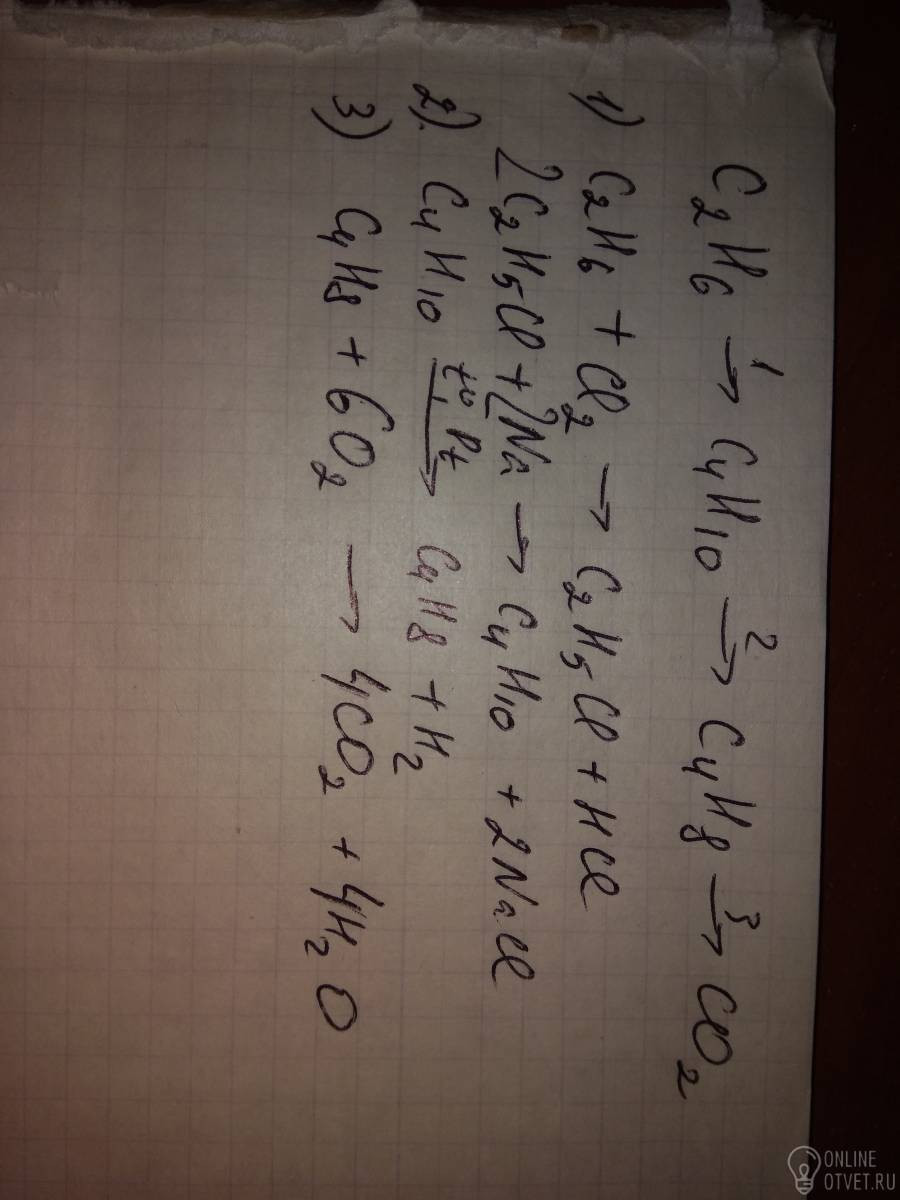 C₂H₆ →¹ C₄H₁₀ →² C₄H₈ →³ CO₂
1) C₂H₆ + Cl₂ → C₂H₅Cl + HCl
2C₂H₅Cl + 2Na → C₄H₁₀ + 2NaCl
2). C₄H₁₀ t°, Pt → C₄H₈ + H₂
3) C₄H₈ + 6O₂ → 4CO₂ + 4H₂O
ONLINE
OTVET.RU